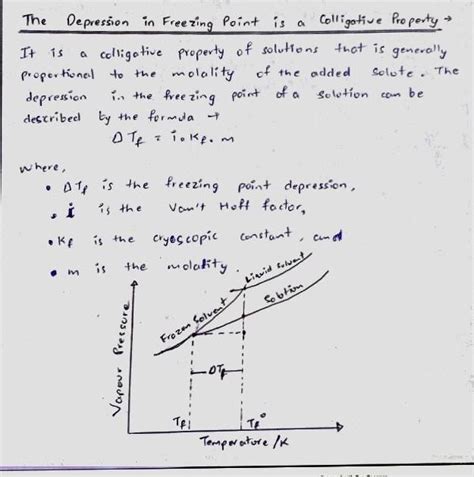 The Depression in Freezing Point is a Colligative Property →
It is a colligative property of solutions that is generally
proportional to the molality of the added solute. The
depression in the freezing point of a solution can be
described by the formula →
ΔTf = i. Kf. m
where,
• ΔTf is the freezing point depression,
• i is the Van't Hoff factor,
• Kf is the cryoscopic constant, and
• m is the molality.
Liquid solvent
Frozen solvent
Solution
Vapour Pressure
ΔTf
Tf
Tf°
Temperature /K